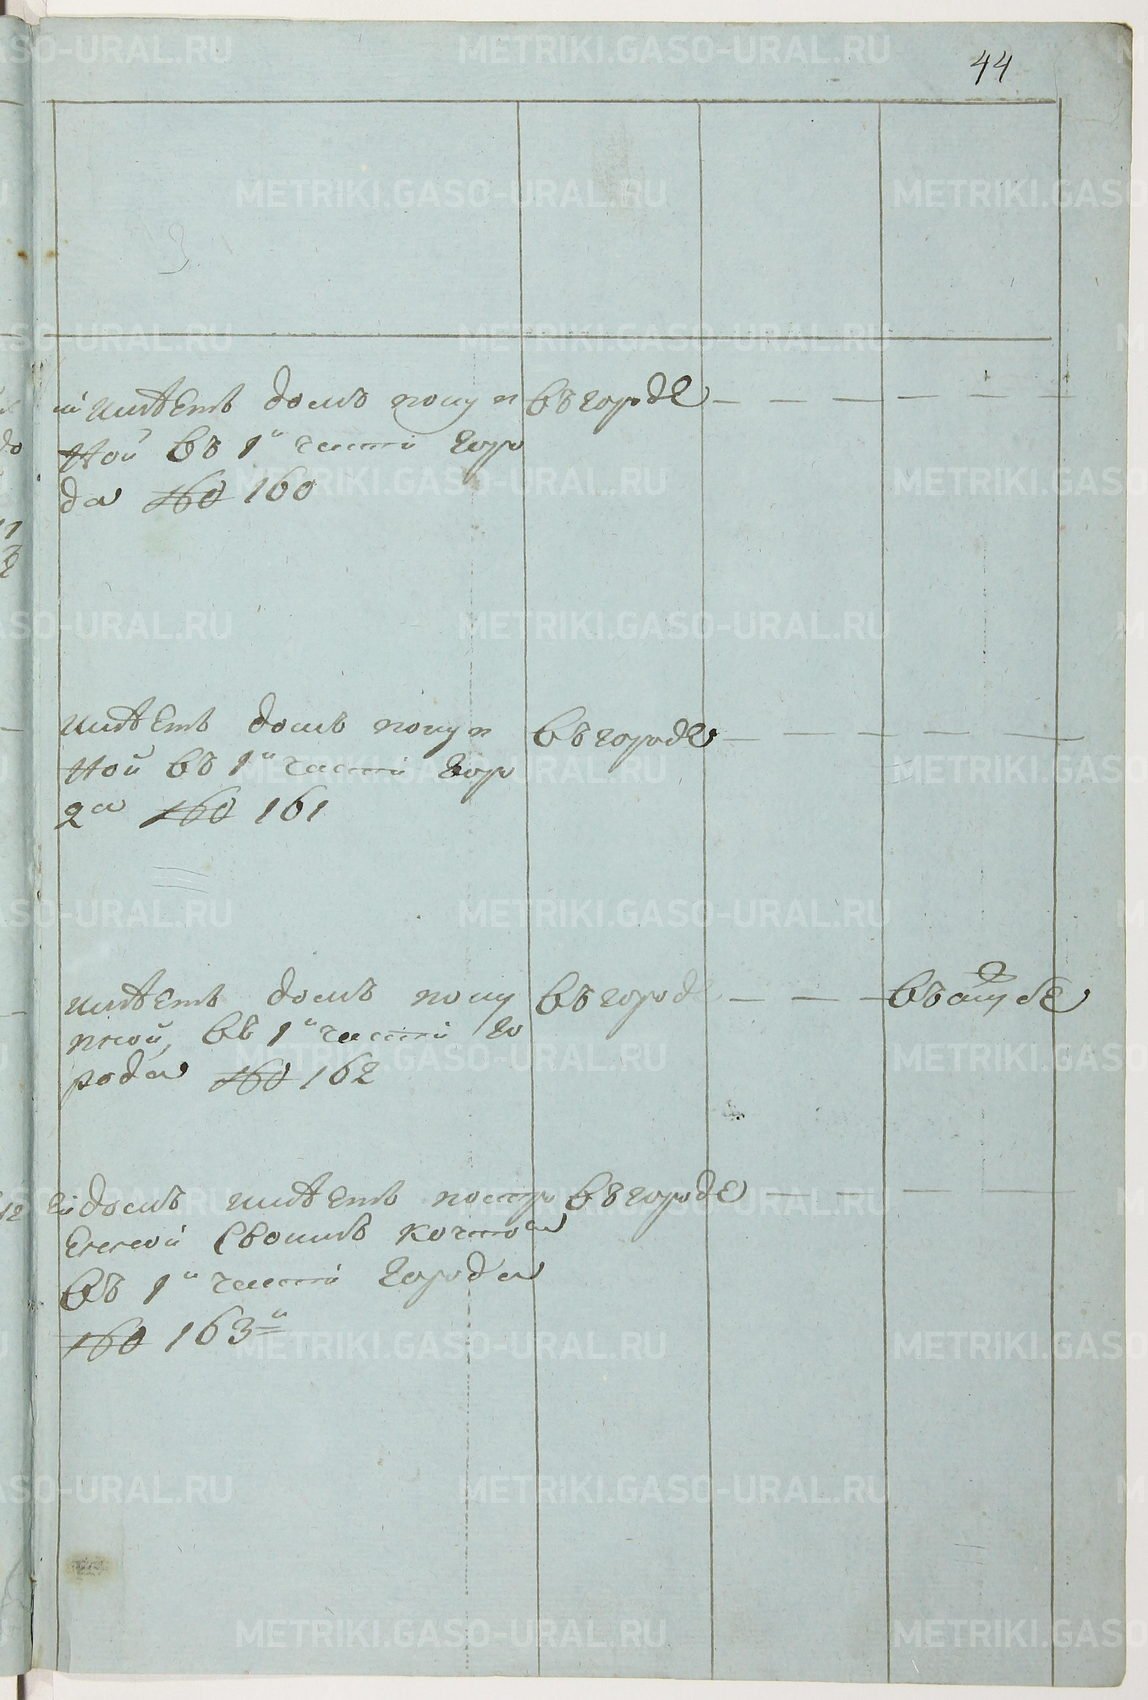 44
имѣетъ домъ покуп въ городе — — — — —
ной въ 1й части горо
да 160 160
имѣетъ домъ покуп въ городе — — — — —
ной въ 1й части горо
да 160 161
имѣетъ домъ поку въ городе — — — въ службе
пной, въ 1й части го
рода 160 162
домъ имѣетъ постро въ городе — — — —
енной своимъ коштом
въ 1й части города
160 163й
METRIKI.GASO-URAL.RU